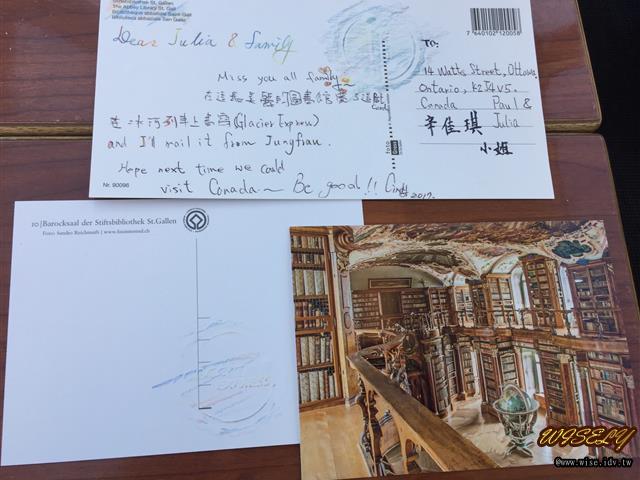 Stiftsbibliothek St. Gallen
The Abbey Library St. Gall
Bibliothèque abbatiale Saint-Gall
Biblioteca abbaziale San Gallo
7 640102 120058
Dear Julia & family
Miss you all family~
在這超美麗的圖書館買了這監
Card
在冰河列車上書寫(Glacier Express)
and I'll mail it from Jungfrau.
Hope next time we could
visit Canada~ Be good!! Cindy
2017.
Nr. 90096
foto
To:
14 Watts Street, Ottawa,
Ontario, K2J4V5.
Canada Paul &
辛佳琪 Julia
小姐
10 | Barocksaal der Stiftsbibliothek St.Gallen
WISELY
@www.wise.idv.tw